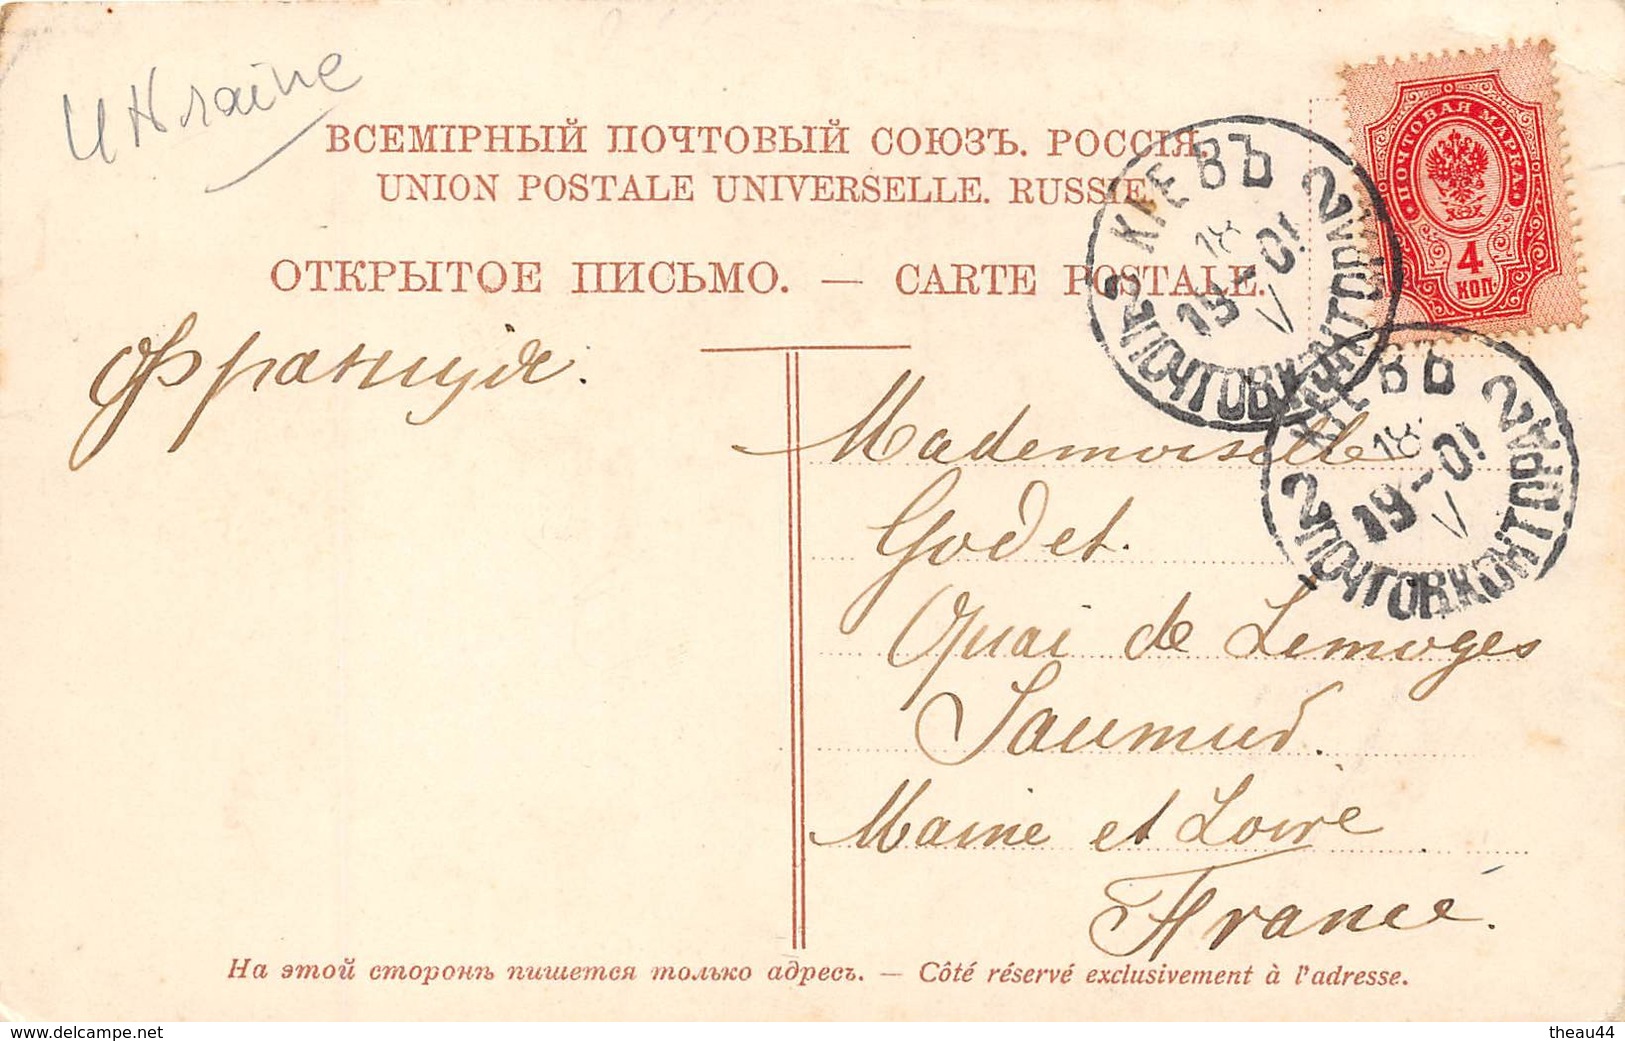 Ukraine
ВСЕМІРНЫЙ ПОЧТОВЫЙ СОЮЗЪ. РОССІЯ.
UNION POSTALE UNIVERSELLE. RUSSIE
ОТКРЫТОЕ ПИСЬМО. — CARTE POSTALE.
ПОЧТОВАЯ МАРКА
4
КОП.
КІЕВЪ 2
18
19-01
V
2 ПОЧТОВ. КОНТОРА
КІЕВЪ 2
18
19-01
V
2 ПОЧТОВ. КОНТОРА
Франція.
Mademoiselle
Godet.
Quai de Limoges
Saumur.
Maine et Loire
France.
На этой сторонѣ пишется только адресъ. — Côté réservé exclusivement à l'adresse.
www.delcampe.net
theau44